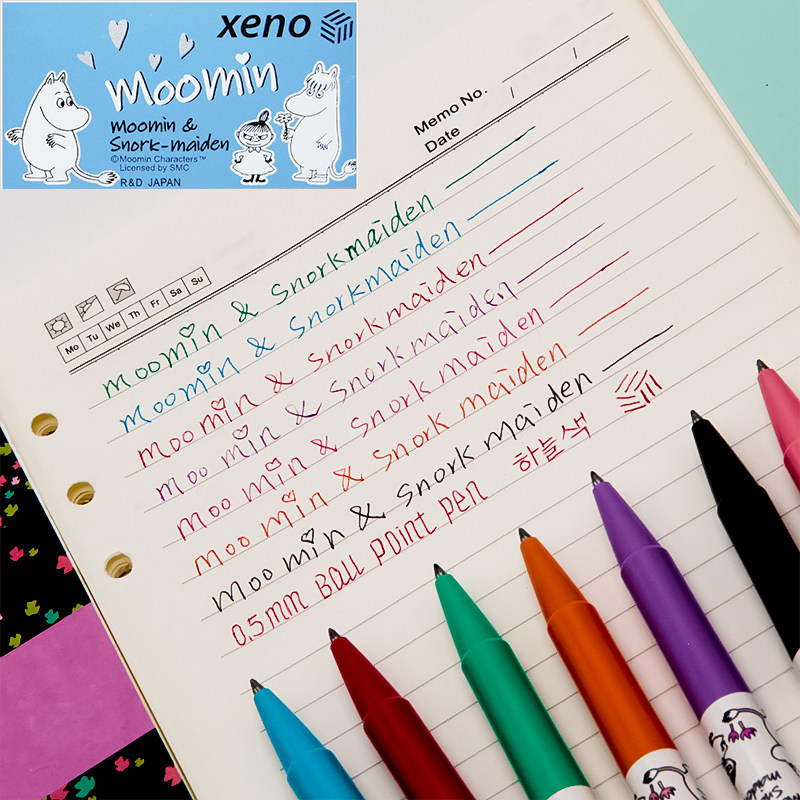 xeno
Moomin
Moomin &
Snork-maiden
©Moomin Characters™
Licensed by SMC
R&D JAPAN
Memo No.
Date / /
Mo Tu We Th Fr Sa Su
Moomin & Snorkmaiden
Moomin & Snorkmaiden
Moomin & Snorkmaiden
Moomin & Snorkmaiden
Moomin & Snork maiden
Moomin & Snork maiden
Moomin & Snork Maiden
0.5mm BALL POINT PEN 하늘색